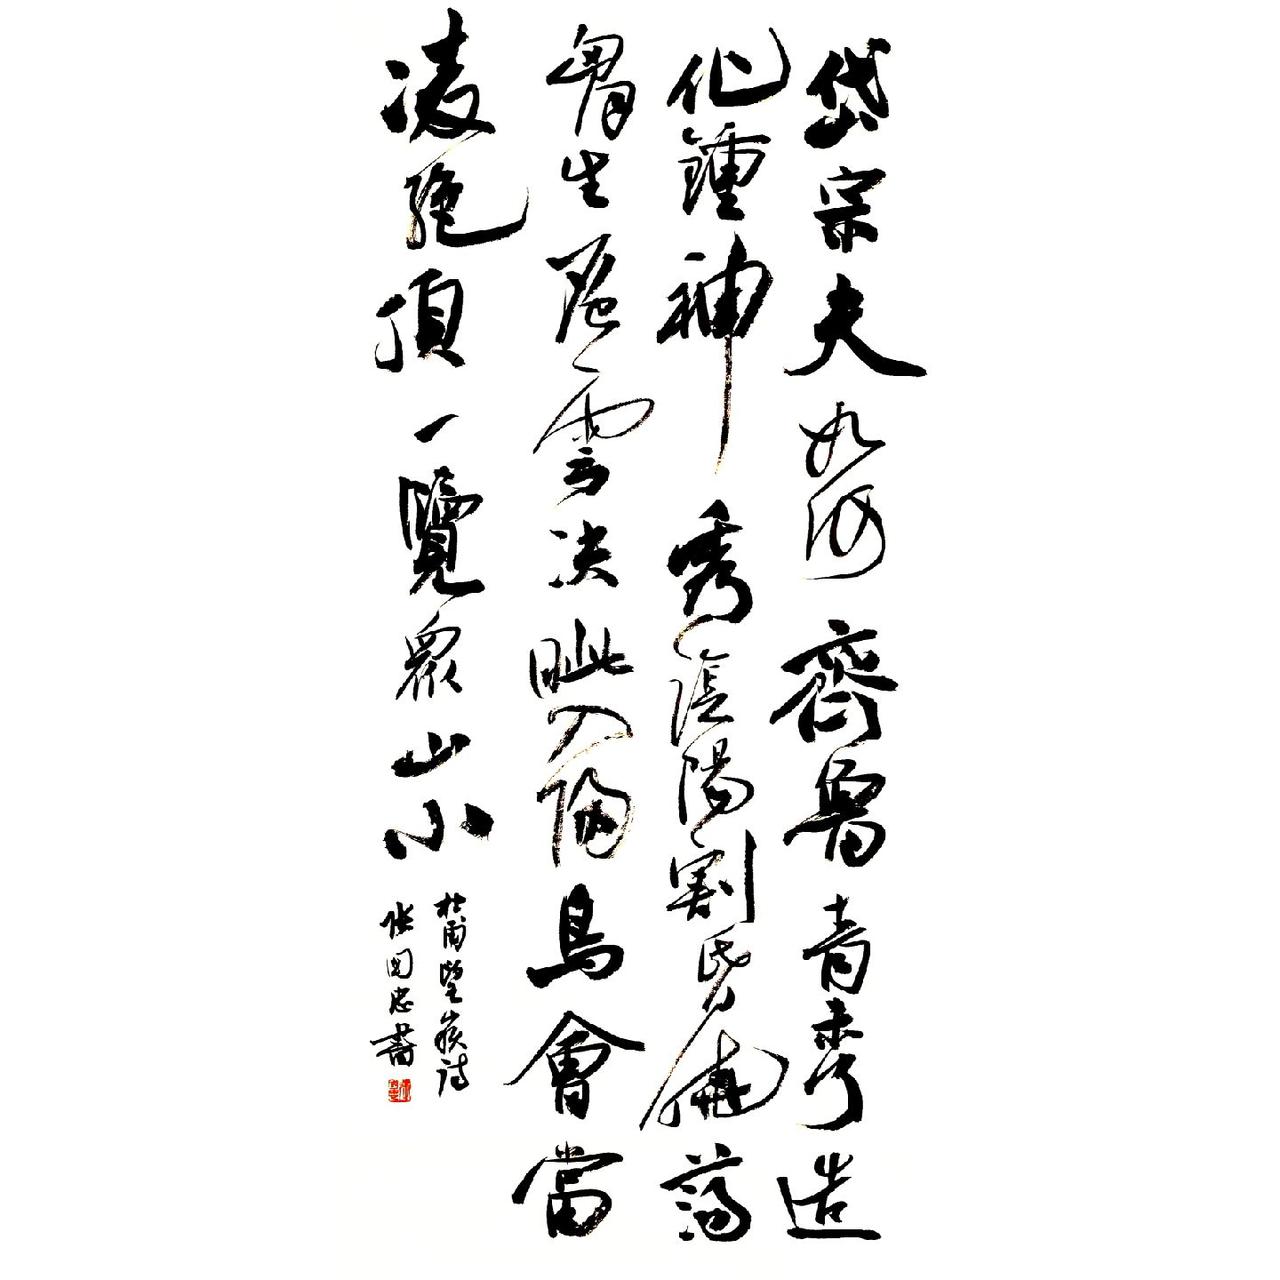 岱宗夫如何齊魯青未了造
化鍾神秀陰陽割昏曉蕩
胷生層雲决眦入歸鳥會當
凌絕頂一覽眾山小
杜甫望嶽詩
張国忠書